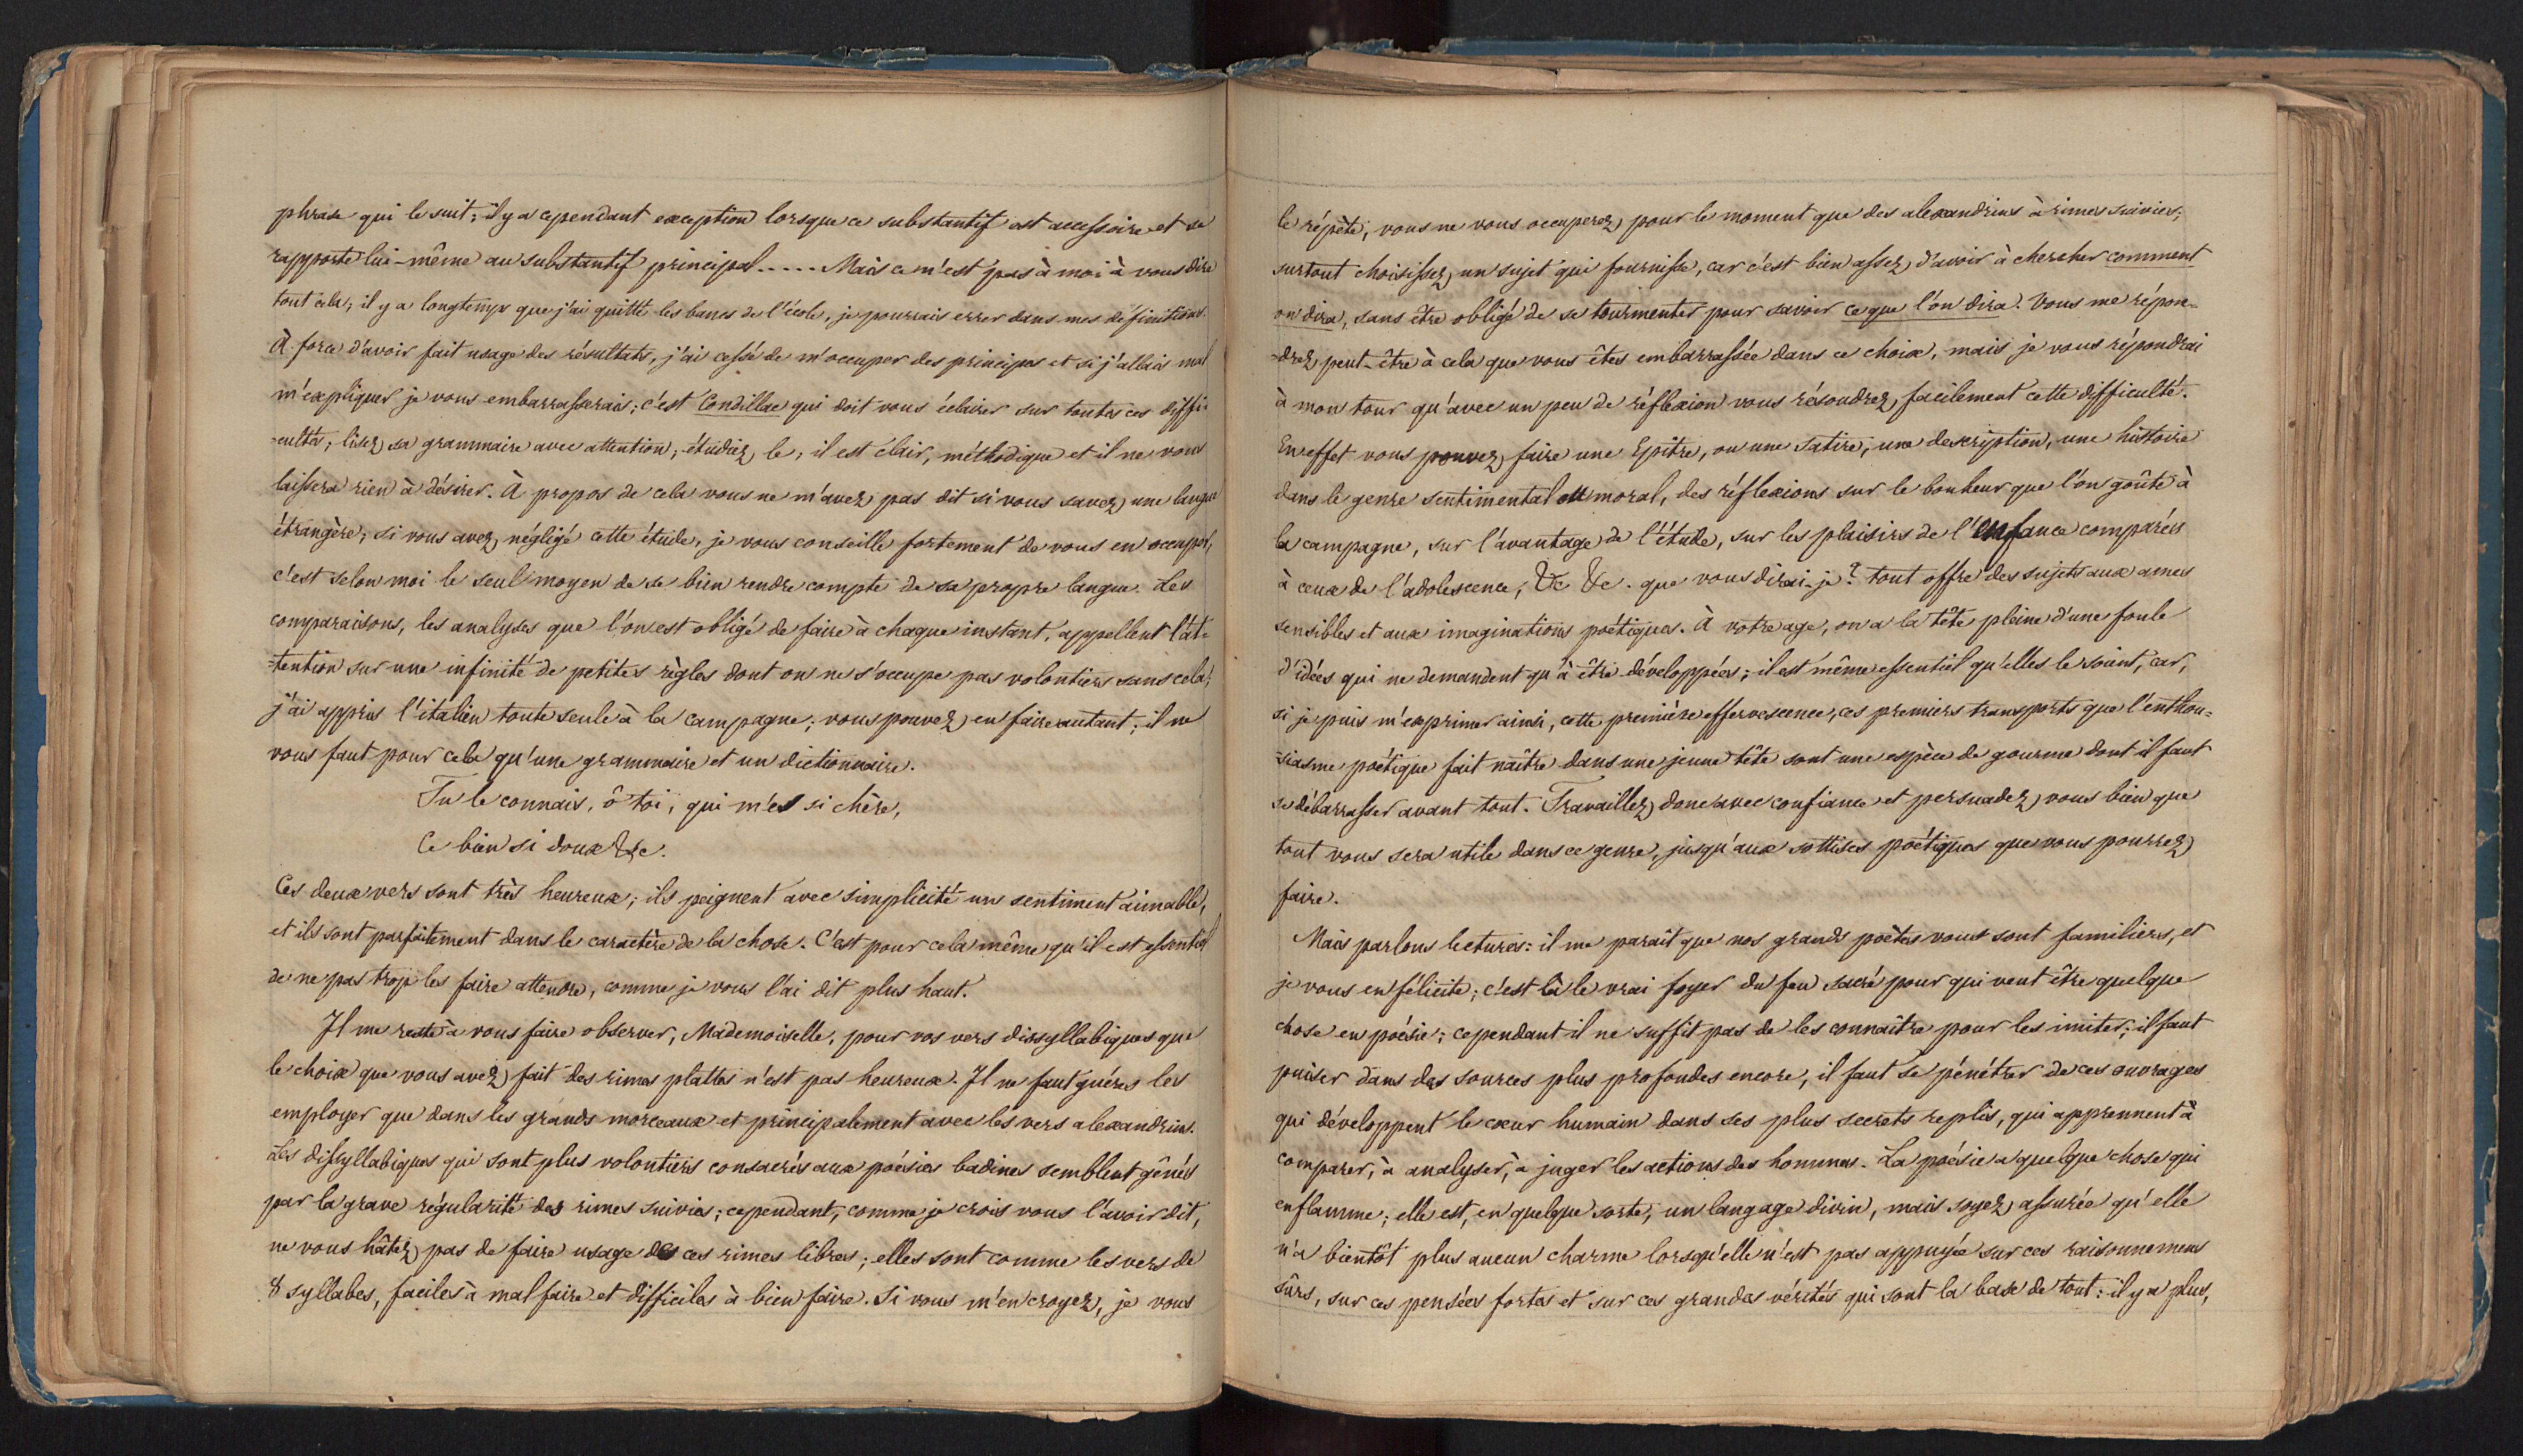 phrase qui le suit; il y a cependant exception lorsque ce substantif est accessoire et se
rapporte lui-même au substantif principal..... Mais ce n'est pas à moi à vous dire
tout cela; il y a longtemps que j'ai quitté les bancs de l'école, je pourrais errer dans mes définitions.
À force d'avoir fait usage des résultats, j'ai cessé de m'occuper des principes et si j'allais mal
m'expliquer je vous embarrasserais; c'est Condillac qui doit vous éclairer sur toutes ces diffi-
-cultés; lisez sa grammaire avec attention; étudiez le, il est clair, méthodique et il ne vous
laissera rien à désirer. À propos de cela vous ne m'avez pas dit si vous savez une langue
étrangère; si vous avez négligé cette étude, je vous conseille fortement de vous en occuper,
c'est selon moi le seul moyen de se bien rendre compte de sa propre langue. Les
comparaisons, les analyses que l'on est obligé de faire à chaque instant, appellent l'at-
-tention sur une infinité de petites règles dont on ne s'occupe pas volontiers sans cela;
j'ai appris l'italien toute seule à la campagne; vous pouvez en faire autant; il ne
vous faut pour cela qu'une grammaire et un dictionnaire.
Tu le connais, ô toi, qui m'es si chère,
Ce bien si doux &c.
Ces deux vers sont très heureux; ils peignent avec simplicité un sentiment aimable,
et ils sont parfaitement dans le caractère de la chose. C'est pour cela même qu'il est essentiel
de ne pas trop les faire attendre, comme je vous l'ai dit plus haut.
Il me reste à vous faire observer, Mademoiselle, pour vos vers dissyllabiques que
le choix que vous avez fait des rimes plattes n'est pas heureux. Il ne faut guères les
employer que dans les grands morceaux et principalement avec les vers alexandrins.
Les dissyllabiques qui sont plus volontiers consacrés aux poésies badines semblent gênés
par la grave régularité des rimes suivies; cependant, comme je crois vous l'avoir dit,
ne vous hâtez pas de faire usage de ces rimes libres; elles sont comme les vers de
8 syllabes, faciles à mal faire et difficiles à bien faire. Si vous m'en croyez, je vous
le répète, vous ne vous occuperez pour le moment que des alexandrins à rimes suivies;
surtout choisissez un sujet qui fournisse, car c'est bien assez d'avoir à chercher comment
on dira, sans être obligé de se tourmenter pour savoir ce que l'on dira. Vous me répon-
-drez peut-être à cela que vous êtes embarrassée dans ce choix, mais je vous répondrai
à mon tour qu'avec un peu de réflexion vous résoudrez facilement cette difficulté.
En effet vous pouvez faire une Epitre, ou une Satire, une description, une histoire
dans le genre sentimental ou moral, des réflexions sur le bonheur que l'on goûte à
la campagne, sur l'avantage de l'étude, sur les plaisirs de l'enfance comparés
à ceux de l'adolescence, &c &c. que vous dirai-je? tout offre des sujets aux ames
sensibles et aux imaginations poétiques. À votre age, on a la tête pleine d'une foule
d'idées qui ne demandent qu'à être développées; il est même essentiel qu'elles le soient, car,
si je puis m'exprimer ainsi, cette première effervescence, ces premiers transports que l'enthou-
-siasme poétique fait naître dans une jeune tête sont une espèce de gourme dont il faut
se débarrasser avant tout. Travaillez donc avec confiance et persuadez vous bien que
tout vous sera utile dans ce genre, jusqu'aux sottises poétiques que vous pourrez
faire.
Mais parlons lectures: il me parait que nos grands poëtes vous sont familiers, et
je vous en félicite; c'est là le vrai foyer du feu sacré pour qui veut être quelque
chose en poésie; cependant il ne suffit pas de les connaître pour les imiter; il faut
puiser dans des sources plus profondes encore, il faut se pénétrer de ces ouvrages
qui développent le cœur humain dans ses plus secrets replis, qui apprennent à
comparer, à analyser, à juger les actions des hommes. La poésie a quelque chose qui
enflamme; elle est, en quelque sorte, un langage divin, mais soyez assurée qu'elle
n'a bientôt plus aucun charme lorsqu'elle n'est pas appuyée sur ces raisonnemens
sûrs, sur ces pensées fortes et sur ces grandes vérités qui sont la base de tout: il y a plus,